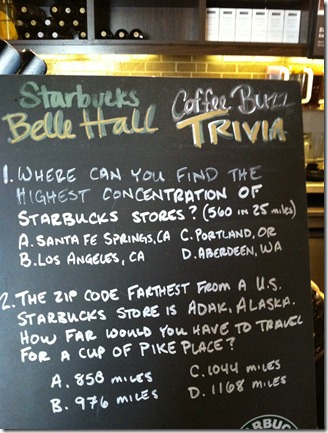 Starbucks Coffee Buzz
Belle Hall TRIVIA
1. WHERE CAN YOU FIND THE
HIGHEST CONCENTRATION OF
STARBUCKS STORES? (560 IN 25 miles)
A. SANTA FE SPRINGS, CA C. PORTLAND, OR
B. LOS ANGELES, CA D. ABERDEEN, WA
2. THE ZIP CODE FARTHEST FROM A U.S.
STARBUCKS STORE IS ADAK, ALASKA.
HOW FAR WOULD YOU HAVE TO TRAVEL
FOR A CUP OF PIKE PLACE?
A. 858 miles C. 1044 miles
B. 976 miles D. 1168 miles